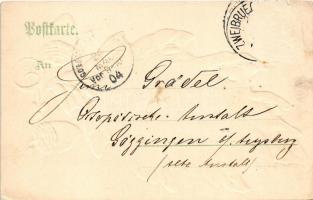 Postkarte.
ZWEIBRUE
An
04
Grädel.
Orthopädische Anstalt
Göggingen b/ Augsburg
(alte Anstalt)